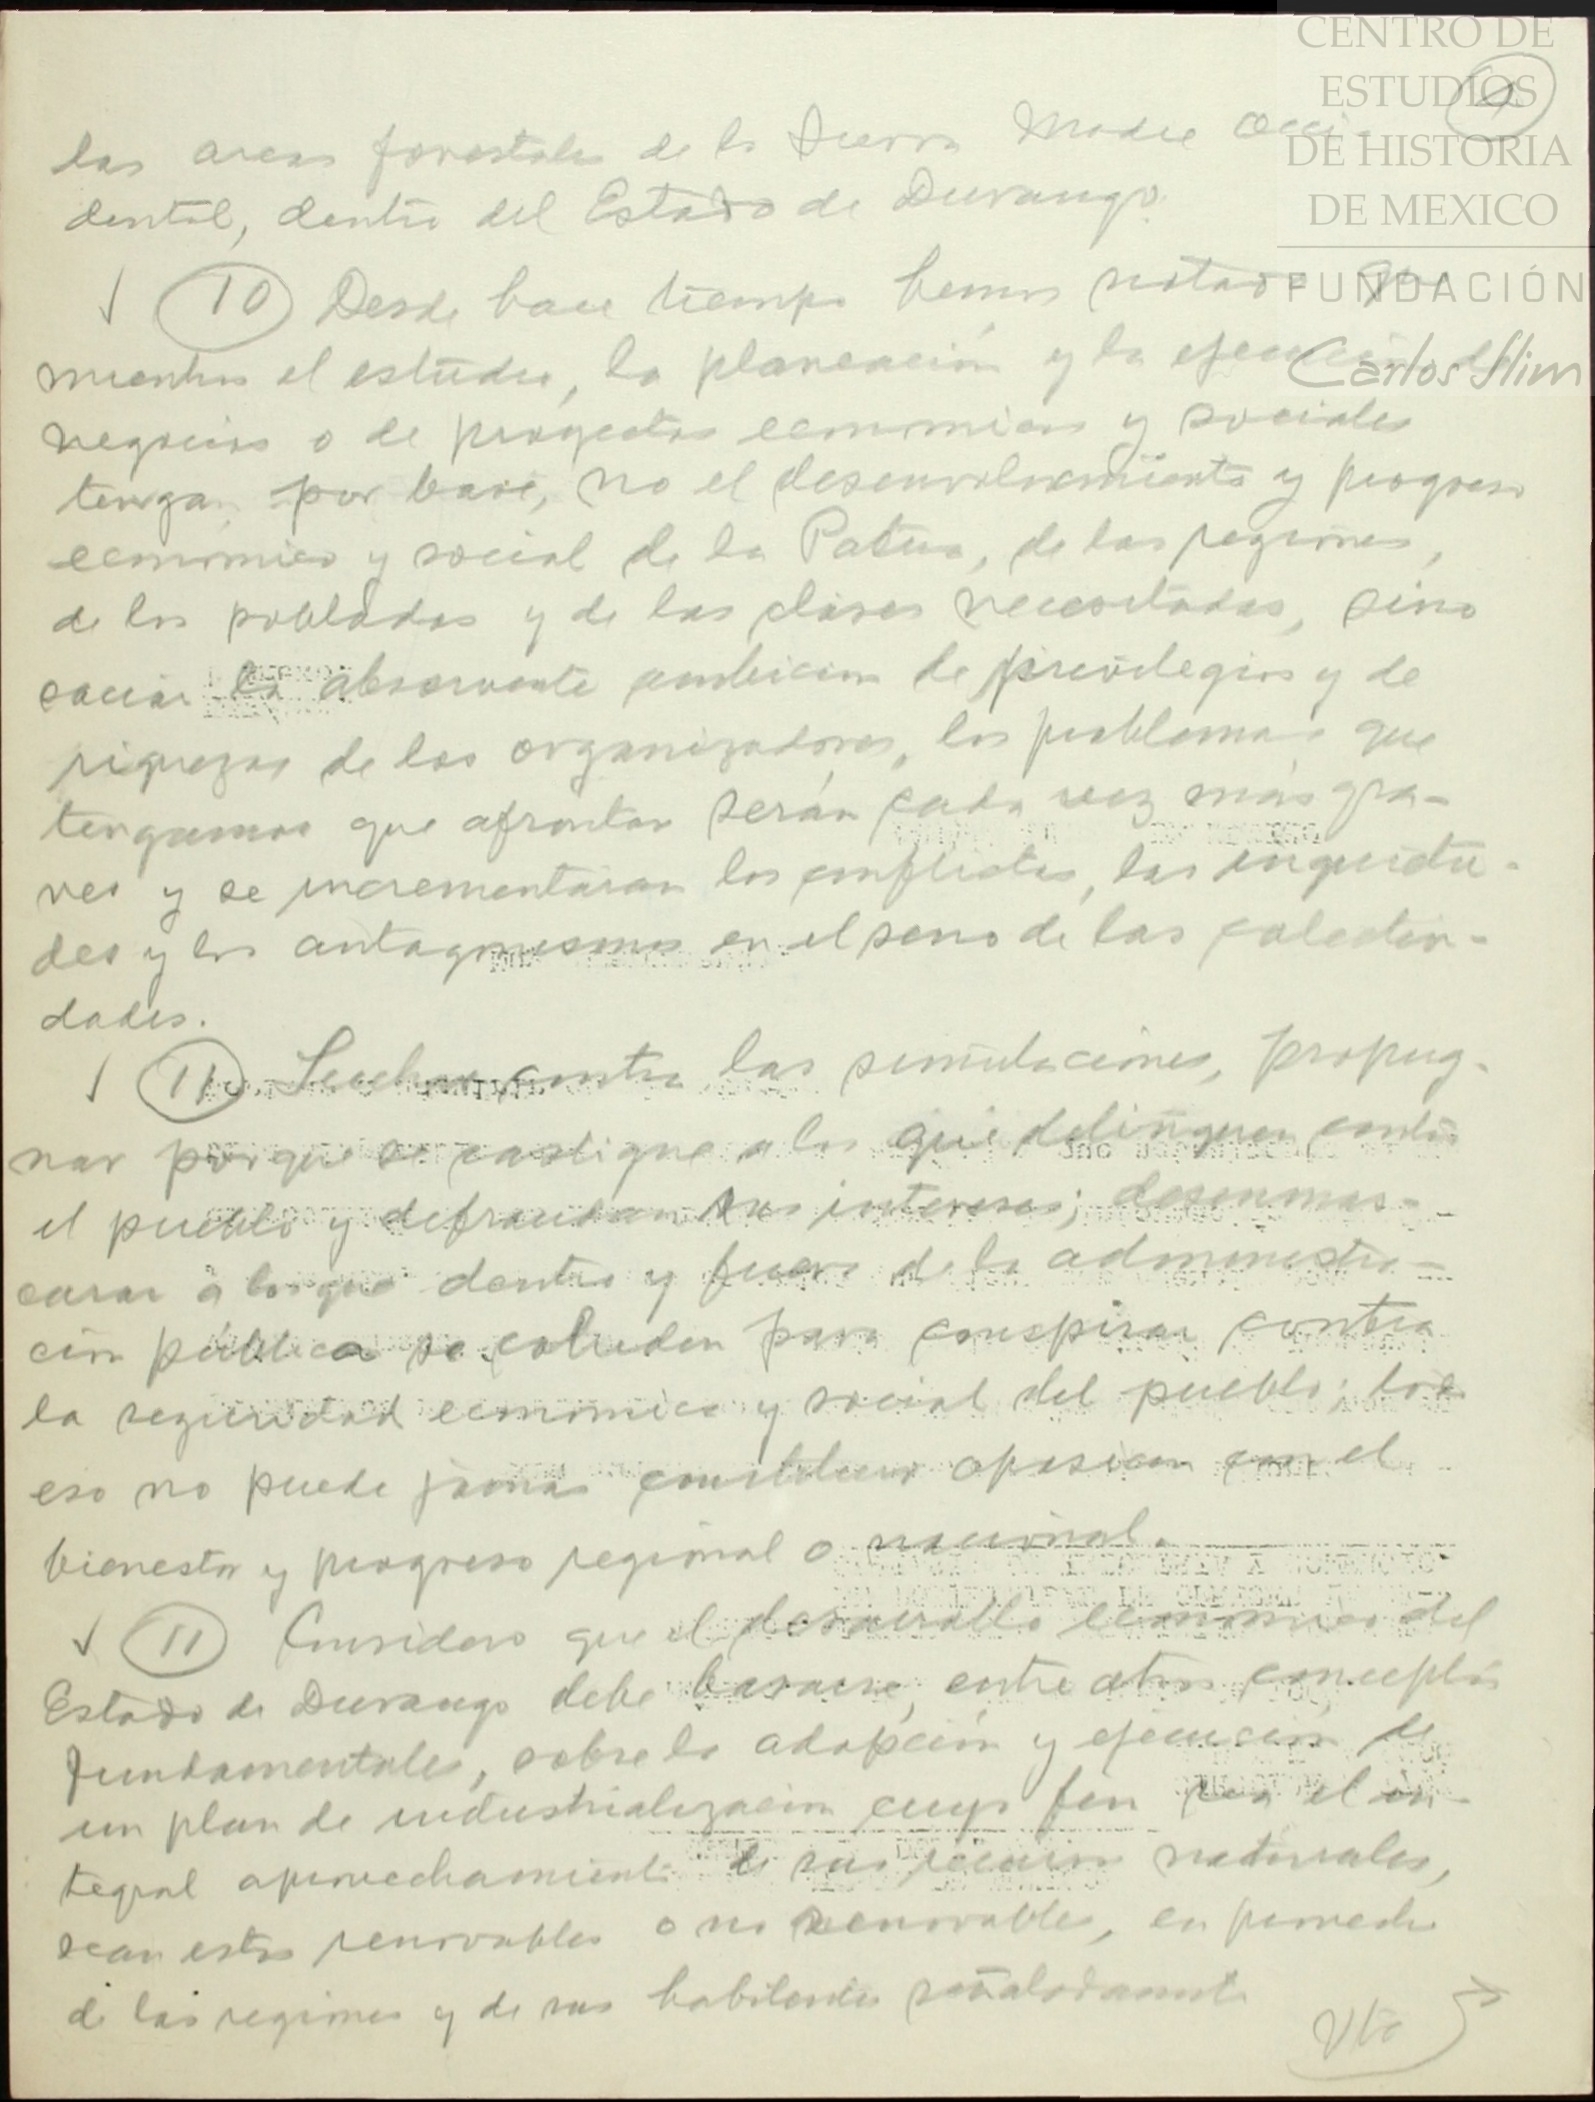 CENTRO DE
ESTUDIOS
DE HISTORIA
DE MEXICO
FUNDACIÓN
Carlos Slim
las areas forestales de la Sierra Madre Occi-
dental, dentro del Estado de Durango.
10 Desde hace tiempo hemos notado que
mientras el estudio, la planeación y la ejecución de
negocios o de proyectos economicos y sociales
tengan por base, no el desenvolvimiento y progreso
económico y social de la Patria, de las regiones,
de los poblados y de las clases necesitadas, sino
saciar la absorvente ambicion de privilegios y de
riquezas de los organizadores, los problemas que
tengamos que afrontar serán cada vez más gra-
ves y se incrementaran los conflictos, las inquietu-
des y los antagonismos en el seno de las colectivi-
dades.
11 Luchar contra las simulaciones, propug-
nar porque se castigue a los que delinquen contra
el pueblo y defraudan sus intereses; desenmas-
carar a los que dentro y fuera de la administra-
ción pública se coluden para conspirar contra
la seguridad economica y social del pueblo; todo
eso no puede jamás constituir oposicion con el
bienestar y progreso regional o nacional.
11 Considero que el desarrollo economico del
Estado de Durango debe basarse, entre otros conceptos
fundamentales, sobre la adopción y ejecución de
un plan de industrialización cuyo fin sea el in-
tegral aprovechamiento de sus recursos naturales,
sean estos renovables o no renovables, en provecho
de las regiones y de sus habitantes señaladamente
Vta